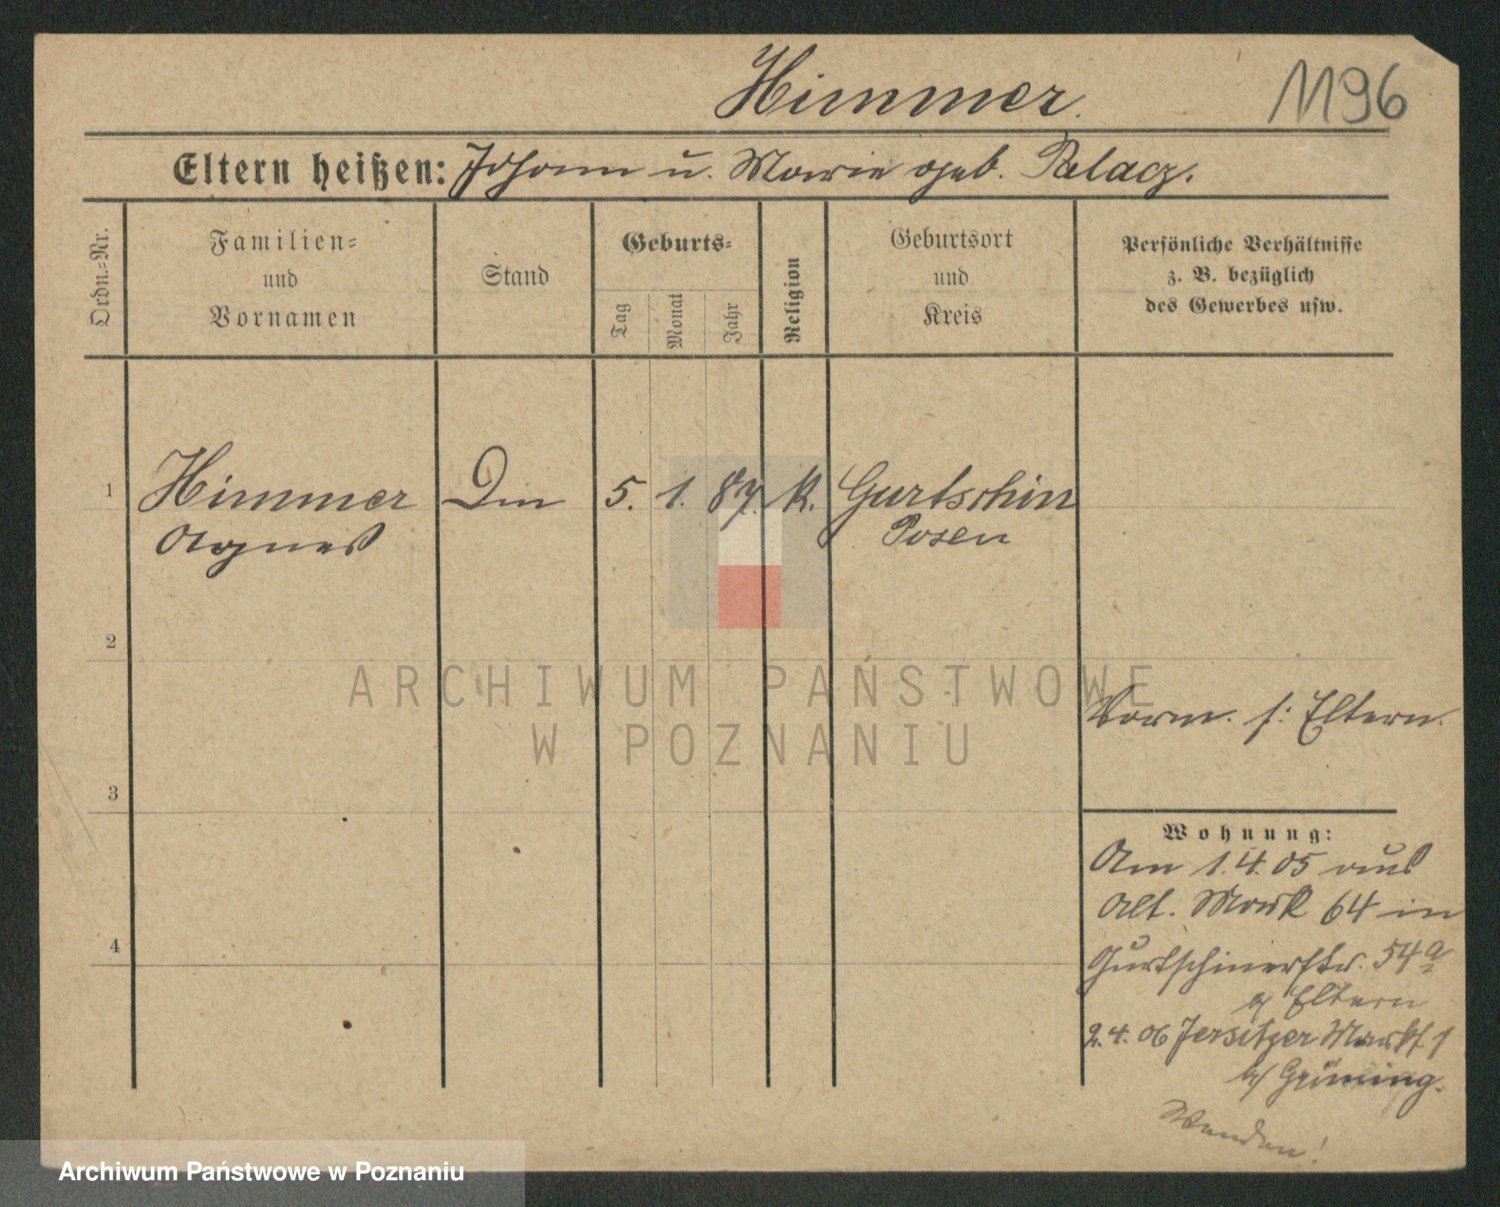 Himmer. 1196
Eltern heißen: Johann u. Marie geb. Palacz.
Ordn.-Nr.
Familien-
und
Vornamen
Stand
Geburts-
Tag
Monat
Jahr
Religion
Geburtsort
und
Kreis
Persönliche Verhältnisse
z. B. bezüglich
des Gewerbes usw.
1 Himmer 5. 1. 87. k. Gurtschin
Agnes Posen
2
ARCHIWUM PAŃSTWOWE
W POZNANIU
Vorm. s: Eltern.
3
Wohnung:
Am 1.4.05 aus
Alt. Markt 64 in
4
Gurtschinerstr. 54a
b/ Eltern
2.4.06 Jersitzer Markt 1
b/ Grüning.
Wenden!
Archiwum Państwowe w Poznaniu